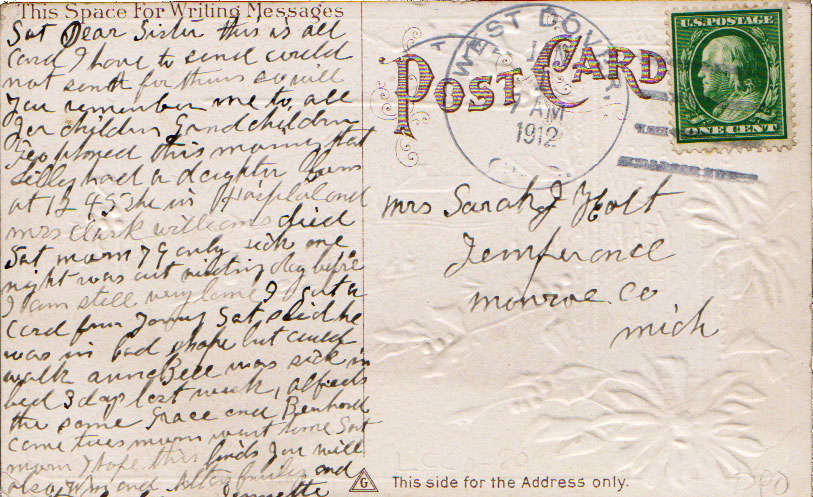 This Space For Writing Messages
Sat Dear Sister this is all
Card I have to send could
not send for thims so will
you remember me to, all
Jer children Grandchildren
Leo phoned this morning that
Lilly had a daughter born
at 12 45 she in Hospital and
mrs Clark williams died
Sat morn 79 only sick one
night was out visiting day before
I am still very lame I got a
card from Tommy Sat said he
was in bad shape but could
walk anna Bell was sick in
bed 3 days last week, alfreds
the same Grace and Bernhard
came tues morn went home Sat
morn I hope this finds you well
also and family and
POST CARD
WEST DOVER
7 AM
1912
U.S. POSTAGE
ONE CENT
Mrs Sarah J Holt
Temperance
Monroe Co
Mich
This side for the Address only.